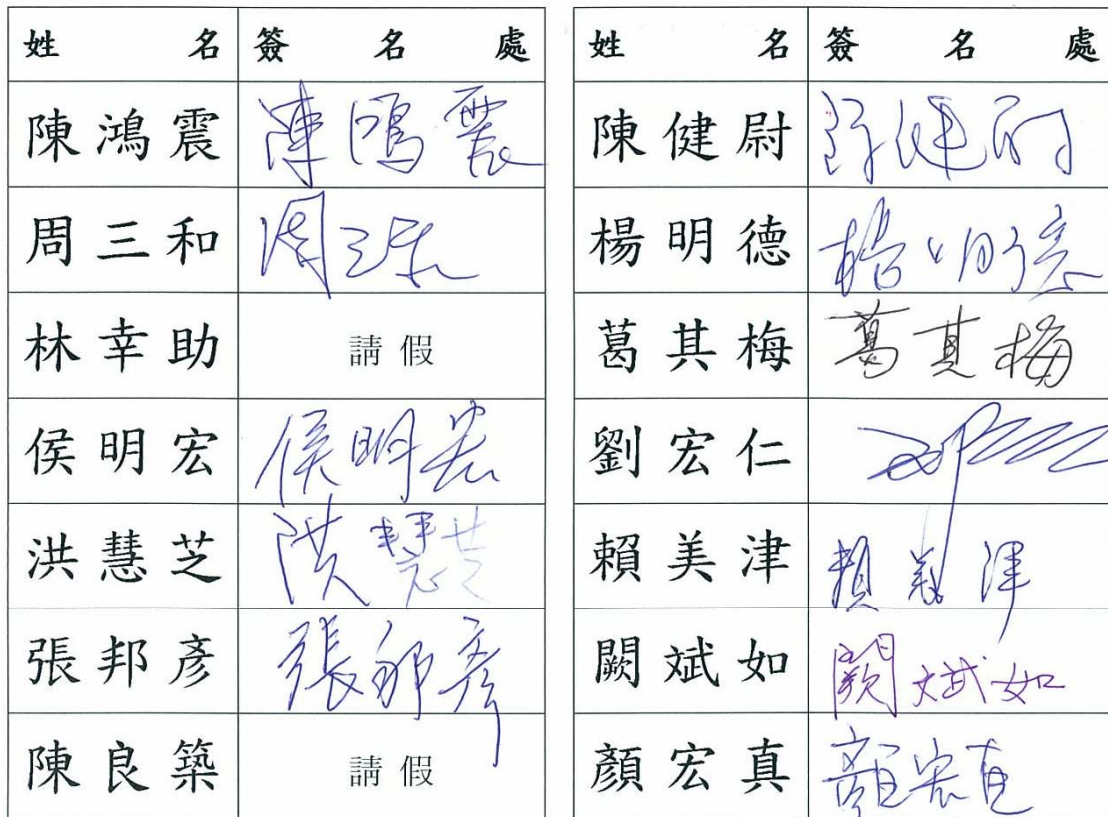 姓名 簽名處
陳鴻震 陳鴻震
周三和 周三和
林幸助 請假
侯明宏 侯明宏
洪慧芝 洪慧芝
張邦彥 張邦彥
陳良築 請假
姓名 簽名處
陳健尉 陳健尉
楊明德 楊明德
葛其梅 葛其梅
劉宏仁
賴美津 賴美津
闕斌如 闕斌如
顏宏真 顏宏真